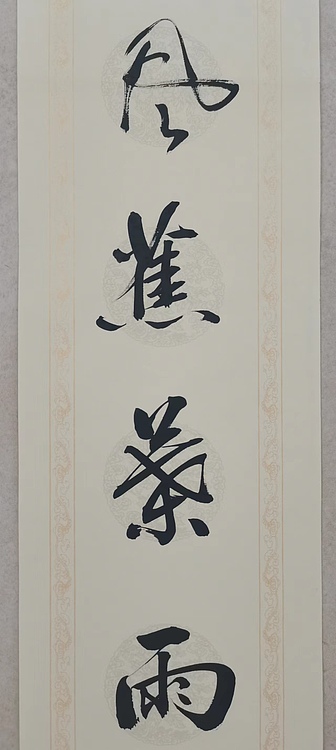 风蕉叶雨